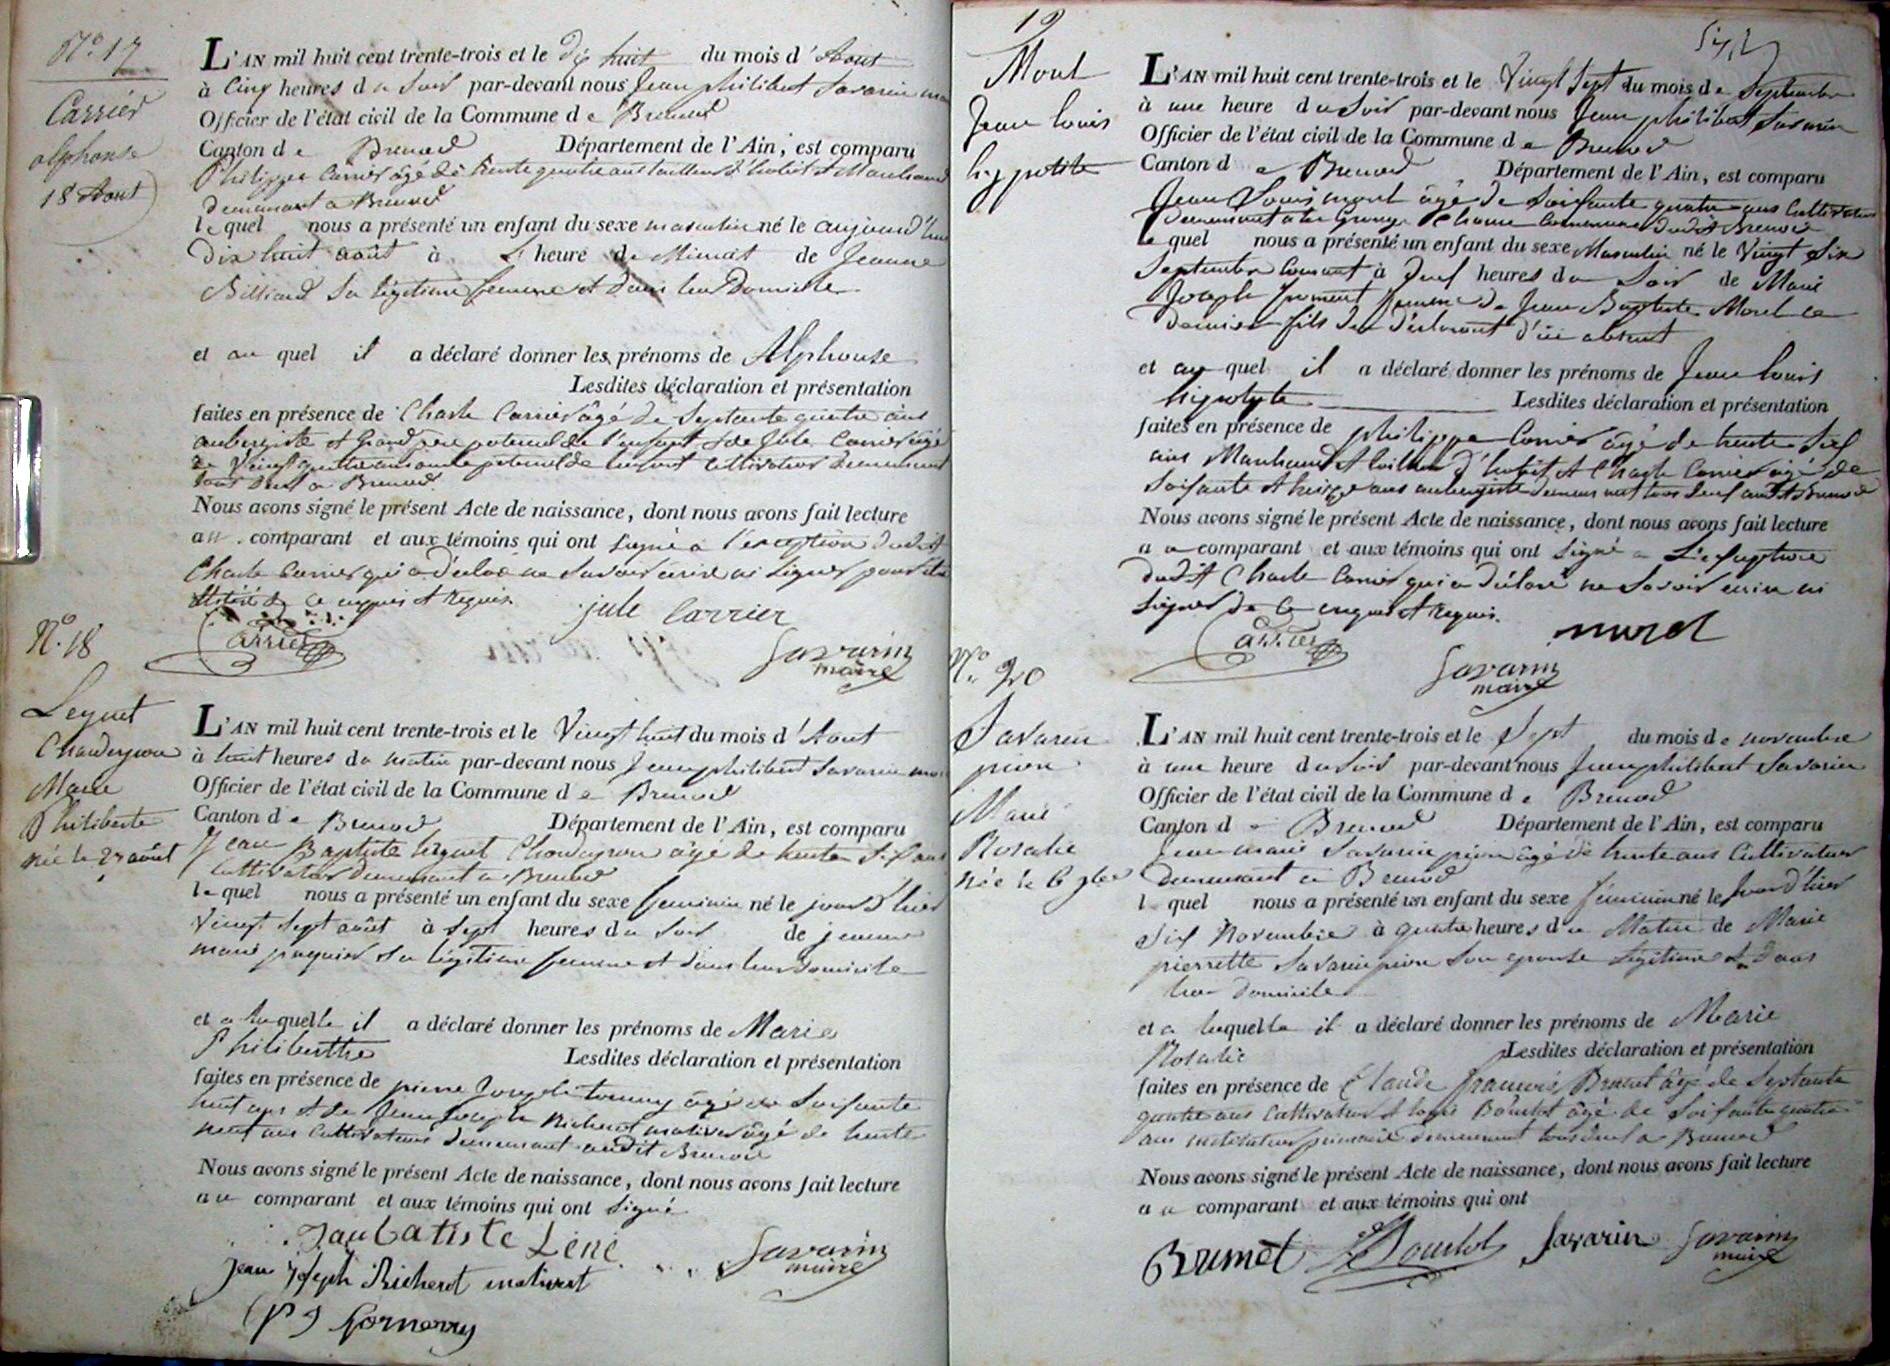 N.° 17
Carrier
alphonse
18 Aout
L'AN mil huit cent trente-trois et le dix huit du mois d'Aout
à Cinq heures du Soir par-devant nous Jean philibert Savarin
Officier de l'état civil de la Commune de Brenod
Canton de Brenod Département de l'Ain, est comparu
Philippe Carrier âgé de trente quatre ans tailleur d'habit et Marchand
demeurant a Brenod
lequel nous a présenté un enfant du sexe masculin né le aujourd'hui
Dix huit août à heure de Minuit de Jeanne
Billiard Sa légitime femme et dans leur Domicile
et au quel il a déclaré donner les prénoms de Alphonse
Lesdites déclaration et présentation
faites en présence de Charle Carrier âgé de Septante quatre ans
aubergiste et Grand pere paternel de l'enfant et de Jule Carrier âgé
de Vingt quatre ans oncle paternel de l'enfant cultivateur demeurant
tous deux a Brenod.
Nous avons signé le présent Acte de naissance, dont nous avons fait lecture
au comparant et aux témoins qui ont signé a l'exception dudit
Charle Carrier qui a déclaré ne Savoir écrire ni signer
de ce enquis et requis.
jule carrier
Carrier
Savarin
maire
N.° 18
Leguet
Chandeyron
Marie
Philiberte
née le 27 août
L'AN mil huit cent trente-trois et le Vingt huit du mois d'Aout
à huit heures du matin par-devant nous Jean philibert Savarin
Officier de l'état civil de la Commune de Brenod
Canton de Brenod Département de l'Ain, est comparu
Jean Baptiste Leguet Chandeyron âgé de trente six ans
Cultivateur demeurant a Brenod
lequel nous a présenté un enfant du sexe feminin né le jour d'hier
Vingt Sept août à Sept heures du Soir de jeanne
marie paquier sa légitime femme et dans leur domicile
et a la quelle il a déclaré donner les prénoms de Marie
Philiberthe
Lesdites déclaration et présentation
faites en présence de pierre Joseph tornery âgé de Soixante
huit ans et de Jean Joseph Richerot mativet âgé de trente
neuf ans Cultivateurs demeurant audit Brenod
Nous avons signé le présent Acte de naissance, dont nous avons fait lecture
au comparant et aux témoins qui ont Signé
Jean Joseph Richerot mativet
Savarin
maire
19
Morel
Jean Louis
hyppolite
L'AN mil huit cent trente-trois et le Vingt Sept du mois de Septembre
à une heure du Soir par-devant nous Jean philibert Savarin
Officier de l'état civil de la Commune de Brenod
Canton de Brenod Département de l'Ain, est comparu
Jean Louis morel âgé de Soixante quatre ans Cultivateur
demeurant a la Grange Commune dudit Brenod
lequel nous a présenté un enfant du sexe Masculin né le Vingt Six
Septembre Courant à neuf heures du Soir de Marie
Joseph froment femme de Jean Baptiste Morel ce
dernier fils du déclarant d'ici absent
et au quel il a déclaré donner les prénoms de Jean Louis
hipolyte Lesdites déclaration et présentation
faites en présence de philippe Carrier âgé de trente Six
ans Marchand et tailleur d'habit et Charle Carrier âgé de
Soixante et treize ans aubergiste demeurant tous deux audit Brenod
Nous avons signé le présent Acte de naissance, dont nous avons fait lecture
au comparant et aux témoins qui ont Signé a L'exception
dudit Charle Carrier qui a déclaré ne Savoir écrire ni
Signer de Ce enquis et requis.
Carrier
morel
Savarin
maire
N.° 20
Savarin
pion
Marie
Rosalie
née le 6 9bre
L'AN mil huit cent trente-trois et le Sept du mois de novembre
à une heure du Soir par-devant nous Jean philibert Savarin
Officier de l'état civil de la Commune de Brenod
Canton de Brenod Département de l'Ain, est comparu
Jean marie Savarin pion âgé de trente ans Cultivateur
demeurant a Brenod
lequel nous a présenté un enfant du sexe féminin né le jour d'hier
Six Novembre à quatre heures du Matin de Marie
pierrette Savarin pion Son epouse légitime et dans
leur domicile
et a laquelle il a déclaré donner les prénoms de Marie
Rosalie Lesdites déclaration et présentation
faites en présence de Claude françois Brunet âgé de Septante
quatre ans Cultivateur et louis Bourlot âgé de Soixante quatre
ans instituteur primaire demeurant tous deux a Brenod
Nous avons signé le présent Acte de naissance, dont nous avons fait lecture
au comparant et aux témoins qui ont
Brunet Bourlot Savarin Savarin
maire